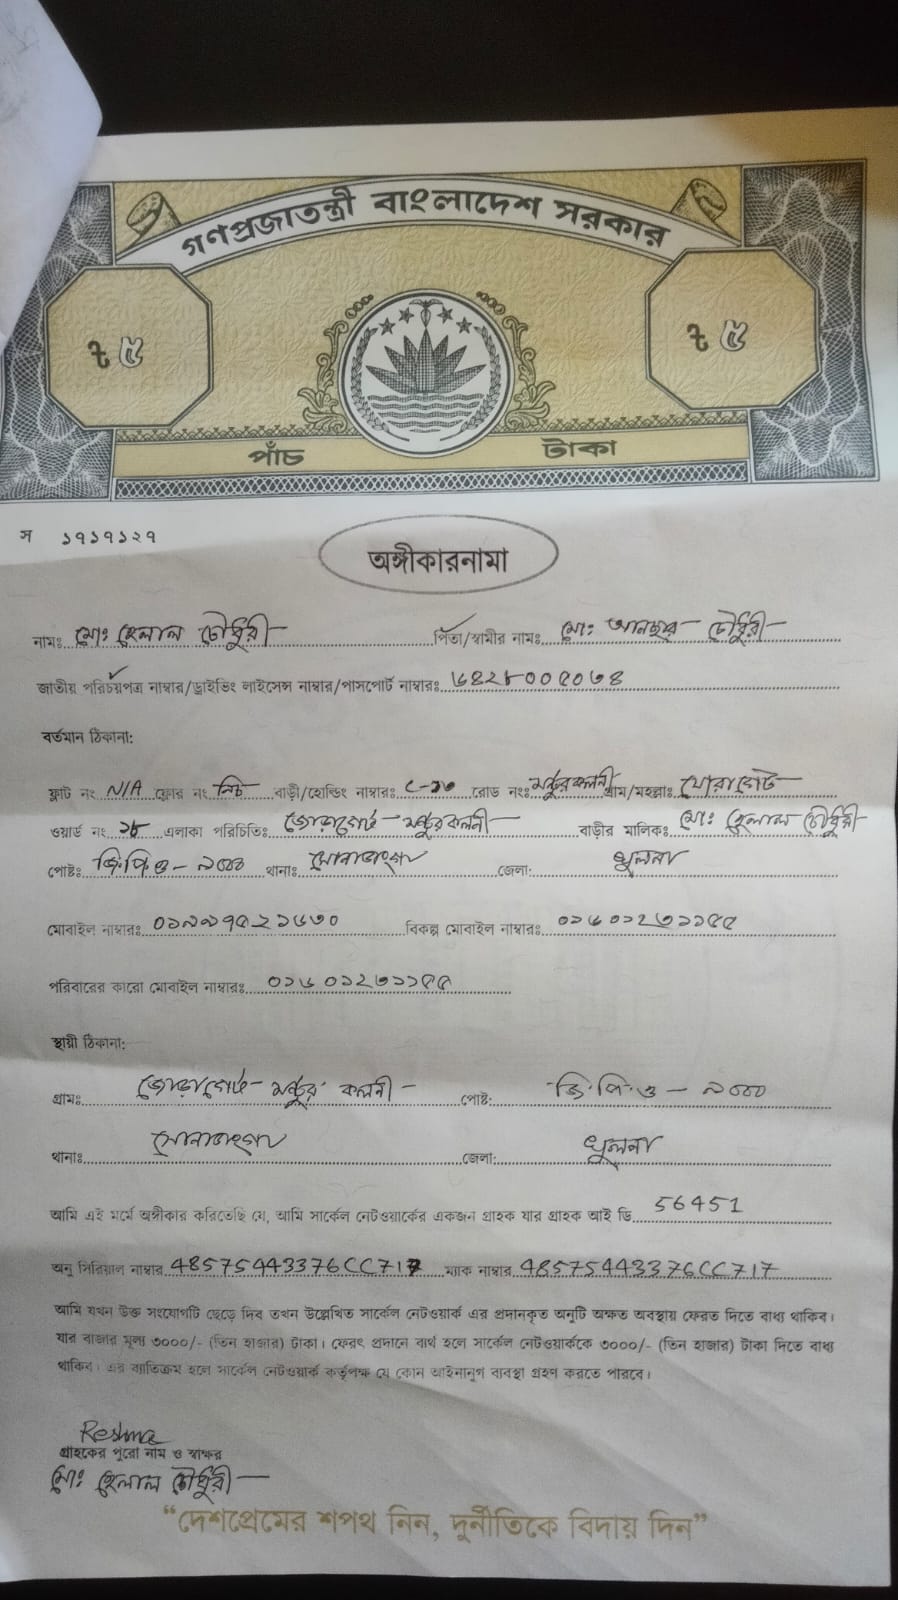 গণপ্রজাতন্ত্রী বাংলাদেশ সরকার
৳ ৫
৳ ৫
পাঁচ টাকা
স ১৭১৭১২৭
অঙ্গীকারনামা
নামঃ মোঃ হেলাল চৌধুরী পিতা/স্বামীর নামঃ মোঃ আনছার চৌধুরী
জাতীয় পরিচয়পত্র নাম্বার/ড্রাইভিং লাইসেন্স নাম্বার/পাসপোর্ট নাম্বারঃ ৬৪২৮০০৫০৭৪
বর্তমান ঠিকানা:
ফ্লাট নং N/A ফ্লোর নং নিচ বাড়ী/হোল্ডিং নাম্বারঃ রোড নংঃ মন্টুর কলনী গ্রাম/মহল্লাঃ
ওয়ার্ড নং ১৮ এলাকা পরিচিতিঃ জোড়াগেট মন্টুর কলনী বাড়ীর মালিকঃ মোঃ হেলাল চৌধুরী
পোষ্টঃ জি.পি.ও - ৯০০০ থানাঃ সোনাডাংগা জেলা: খুলনা
মোবাইল নাম্বারঃ ০১৯৯৭৫২১৬৩০ বিকল্প মোবাইল নাম্বারঃ ০১৬০১২৩১১৫৫
পরিবারের কারো মোবাইল নাম্বারঃ ০১৬০১২৩১১৫৫
স্থায়ী ঠিকানা:
গ্রামঃ জোড়াগেট মন্টুর কলনী পোষ্ট: জি.পি.ও - ৯০০০
থানাঃ সোনাডাংগা জেলা: খুলনা
আমি এই মর্মে অঙ্গীকার করিতেছি যে, আমি সার্কেল নেটওয়ার্কের একজন গ্রাহক যার গ্রাহক আই ডি 56451
অনু সিরিয়াল নাম্বার 48575443376CC717 ম্যাক নাম্বার 48575443376CC717
আমি যখন উক্ত সংযোগটি ছেড়ে দিব তখন উল্লেখিত সার্কেল নেটওয়ার্ক এর প্রদানকৃত অনুটি অক্ষত অবস্থায় ফেরত দিতে বাধ্য থাকিব।
যার বাজার মূল্য ৩০০০/- (তিন হাজার) টাকা। ফেরৎ প্রদানে ব্যর্থ হলে সার্কেল নেটওয়ার্ককে ৩০০০/- (তিন হাজার) টাকা দিতে বাধ্য
থাকিব। এর ব্যাতিক্রম হলে সার্কেল নেটওয়ার্ক কর্তৃপক্ষ যে কোন আইনানুগ ব্যবস্থা গ্রহণ করতে পারবে।
Reshma
গ্রাহকের পুরো নাম ও স্বাক্ষর
মোঃ হেলাল চৌধুরী
“দেশপ্রেমের শপথ নিন, দুর্নীতিকে বিদায় দিন”